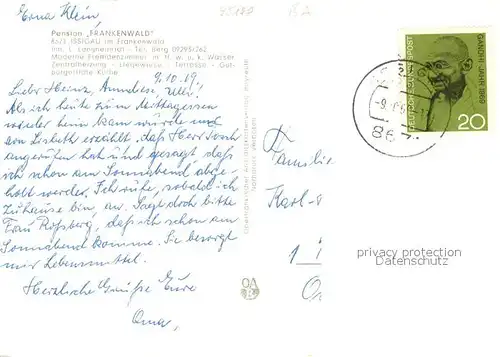 Erna Klein,
Pension „FRANKENWALD"
8671 ISSIGAU im Frankenwald
Inh. L. Langheinrich · Tel. Berg 09293/262
Moderne Fremdenzimmer m. fl. w. u. k. Wasser
Zentralheizung · Liegewiese · Terrasse · Gut-
bürgerliche Küche
9.10.69
Lieber Heinz, Anneliese, Ulli!
Als ich heute zum Mittagessen
wieder heim kam wurde mir
von Lisbeth erzählt, daß Herr
angerufen hat und gesagt, daß
ich schon am Sonnabend abge-
holt werde. Ich rufe, sobald ich
Zuhause bin, an. Sagt doch bitte
Frau Roßberg, daß ich schon am
Sonnabend komme. Sie besorgt
mir Lebensmittel.
Herzliche Grüße Eure
Oma,
DEUTSCHE BUNDESPOST
GANDHI-JAHR 1969
20
867
Familie
Karl-
1
privacy protection
Datenschutz
OA
B